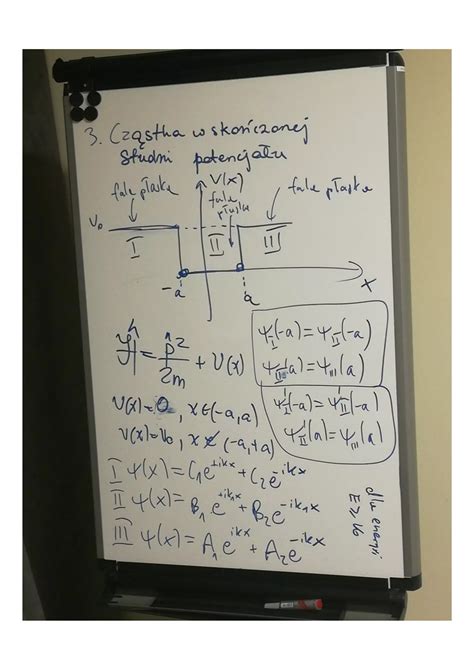 3. Cząstka w skończonej
studni potencjału
V(x)
fala płaska
fala płaska
fala płaska
V₀
I
II
III
-a
a
x
Ĥ = p̂²/2m + V(x)
V(x)=0, x∈(-a,a)
V(x)=V₀, x∉(-a,+a)
Ψ_I(-a)=Ψ_II(-a)
Ψ_II(a)=Ψ_III(a)
Ψ'_I(-a)=Ψ'_II(-a)
Ψ'_II(a)=Ψ'_III(a)
I Ψ(x)=C₁e^{+ikx}+C₂e^{-ikx}
II Ψ(x)=B₁e^{+ik₁x}+B₂e^{-ik₁x}
III Ψ(x)=A₁e^{ikx}+A₂e^{-ikx}
dla energii
E≥V₀